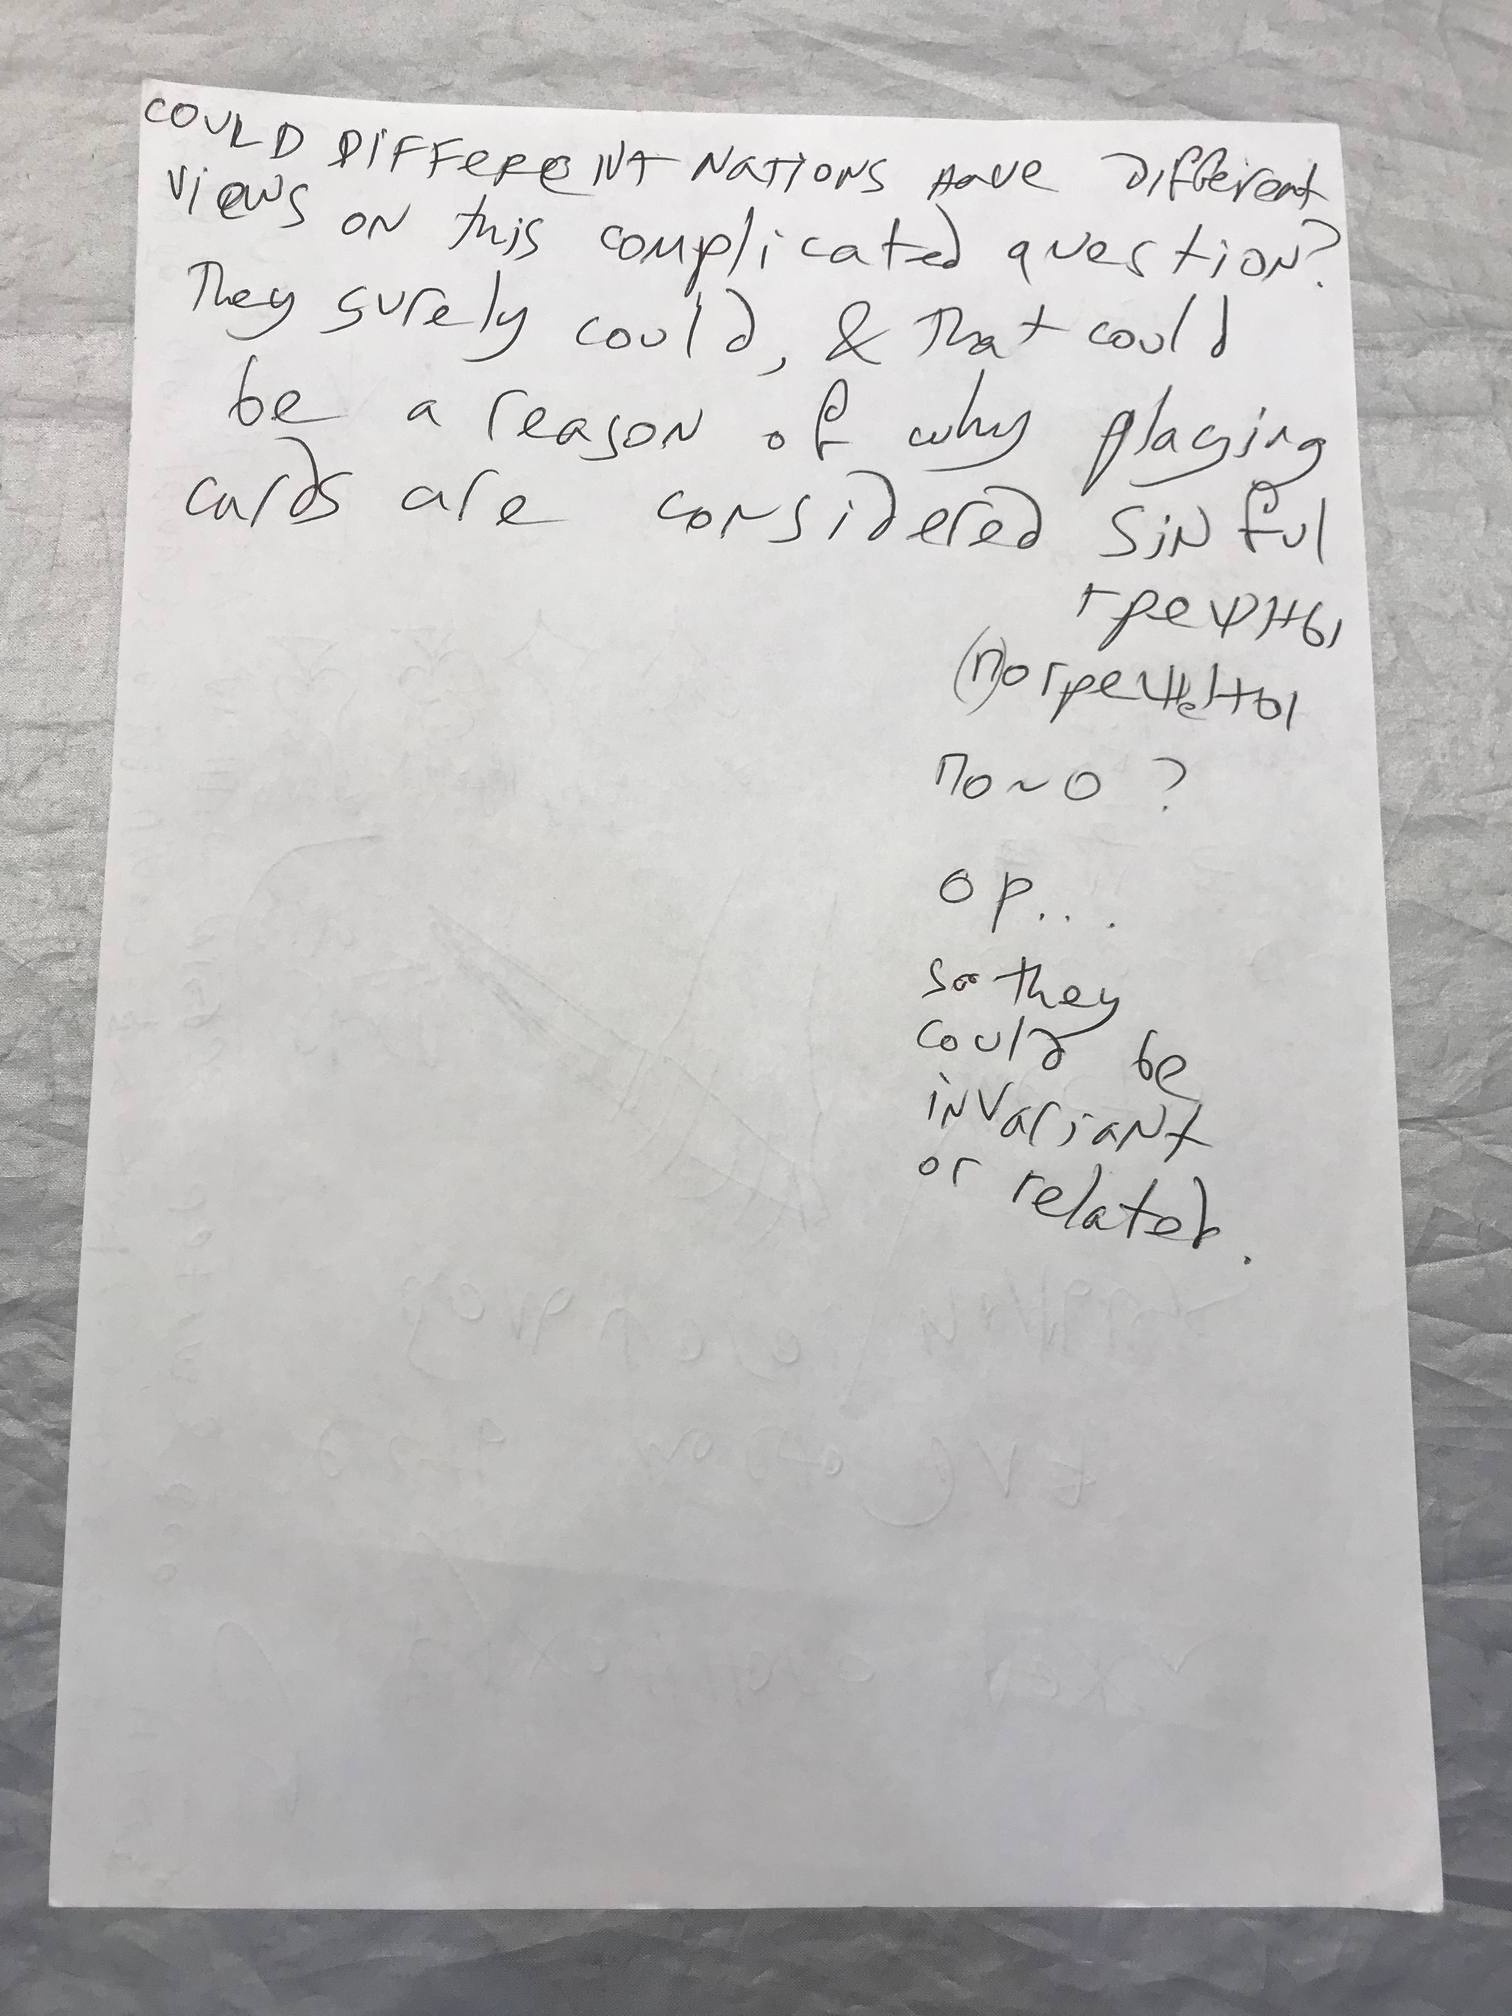 COULD DIFFERENT NATIONS HAVE Different
views on this complicated question?
They surely could, & that could
be a reason of why playing
cards are considered sinful
(п)огрешены
по~о ?
op...
so they
could be
invariant
or related.